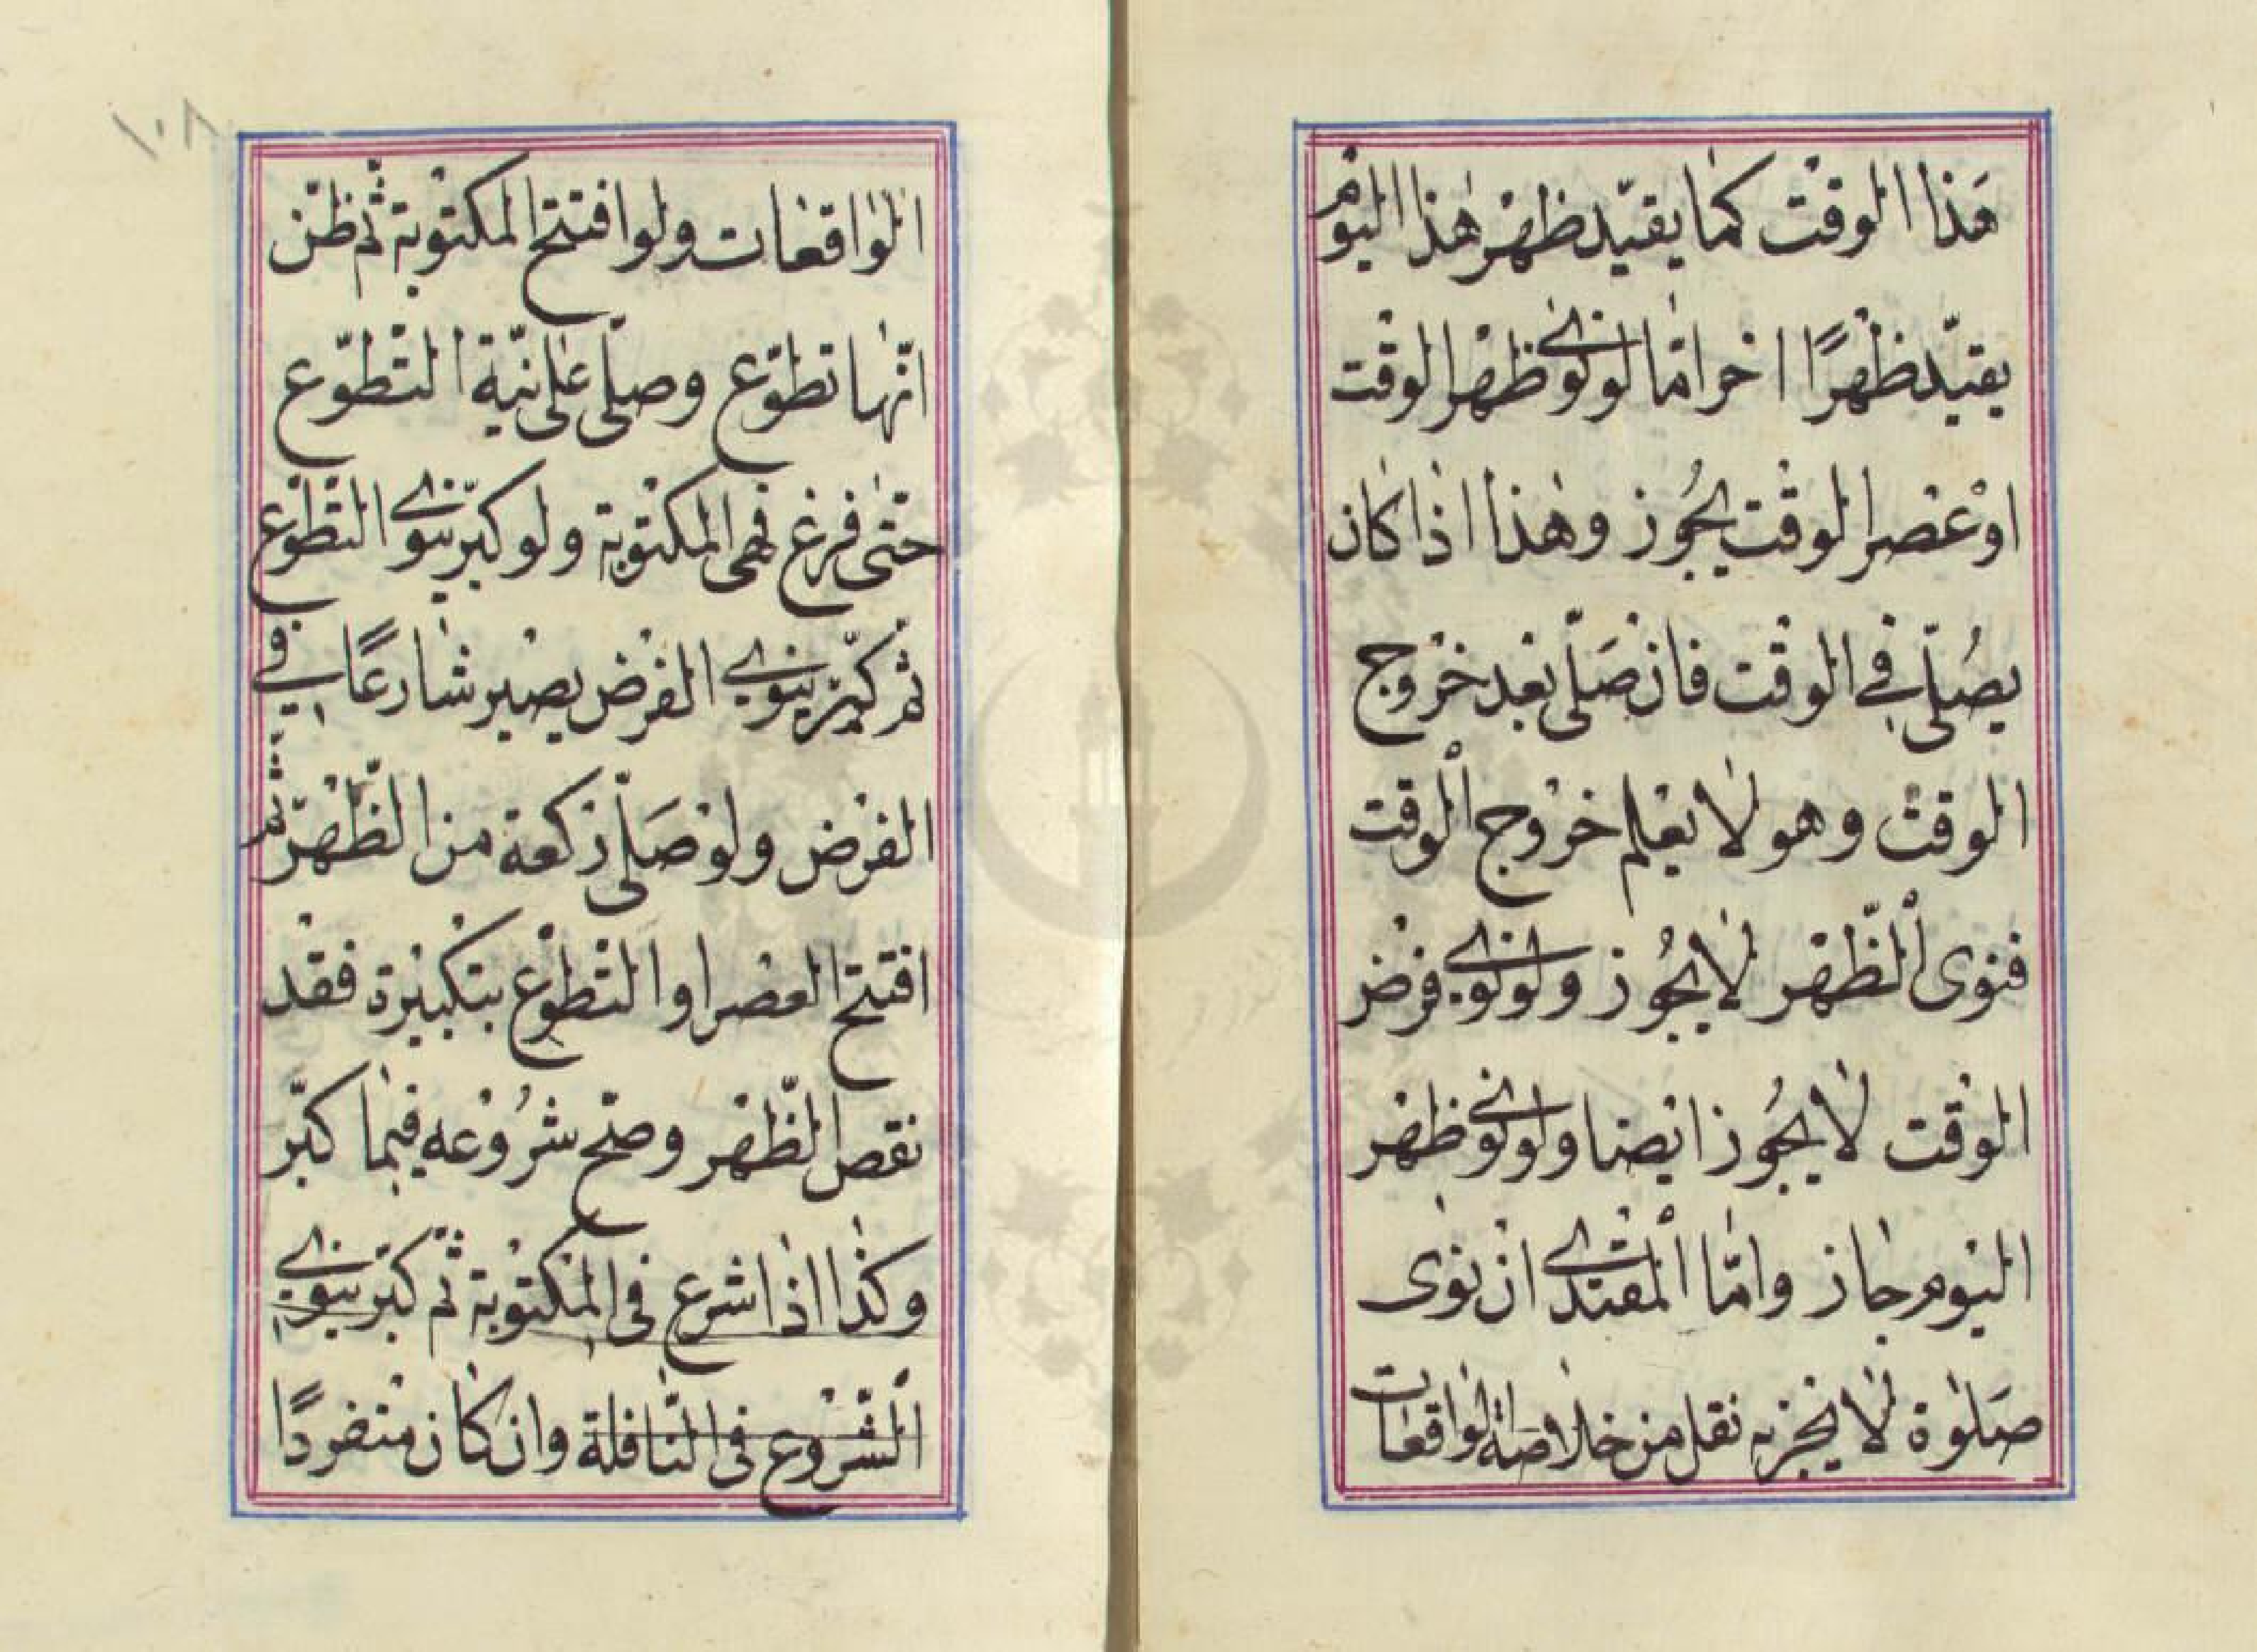 هذا الوقت كما يقيّد ظهر هذا اليوم
يقيّد ظهرًا اخر امّا لو نوى ظهر الوقت
او عصر الوقت يجُوز وهذا اذا كان
يصُلّى فى الوقت فان صَلّى بعد خروج
الوقت وهو لا يعلم خروج الوقت
فنوى الظّهر لا يجُوز ولو نوى فرض
الوقت لا يجُوز ايضا ولو نوى ظهر
اليوم جاز وامّا المقتدى ان نوى
صَلوة لا يجزيه نقل من خلاصة الواقعات
١٠٨
الواقعات ولو افتتح المكتوبة ثم ظنّ
انّها تطوّع وصلى على نيّة التطوّع
حتّى فرغ فهى المكتوبة ولو كبّر ينوى التطوّع
ثم كبّر ينوى الفرض يصير شارعًا فى
الفرض ولو صَلّى ركعة من الظّهر ثم
افتتح العصر او التطوّع بتكبيرة فقد
نقص الظّهر وصحّ شرُوعه فيما كبّر
وكذا اذا شرع فى المكتوبة ثم كبّر ينوى
الشروع فى النّافلة وان كان منفردًا